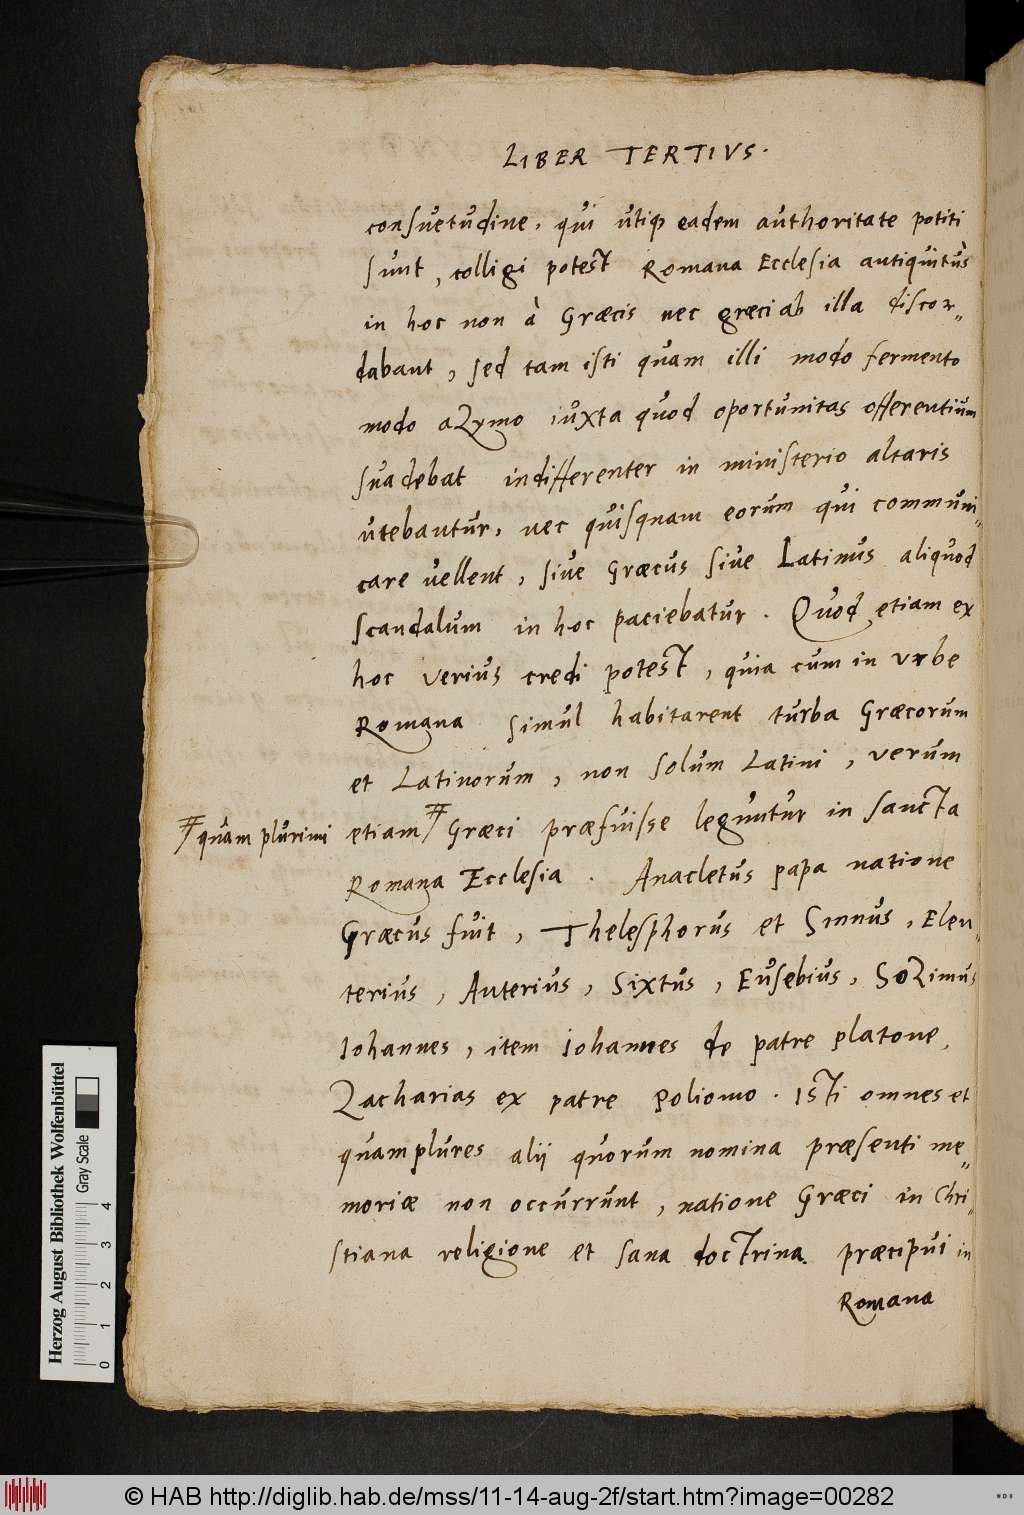 LIBER TERTIVS.
consuetudine, qui utiq; eadem authoritate potiti
sunt, colligi potest Romana Ecclesia antiquitùs
in hoc non à Græcis nec græci ab illa discor„
dabant, sed tam isti quam illi modo fermento
modo azymo iuxta quod oportunitas offerentium
suadebat indifferenter in ministerio altaris
utebantur, nec quisquam eorum qui communi„
care vellent, sive Græcus sive Latinus aliquod
scandalum in hoc paciebatur. Quod etiam ex
hoc verius credi potest, quia cum in urbe
Romana simul habitarent turba Græcorum
et Latinorum, non solum Latini, verum
# quàm plurimi
etiam # Græci præfuisse leguntur in sancta
Romana Ecclesia. Anacletus papa natione
Græcus fuit, Thelesphorus et Sinnus, Eleu„
terius, Anterius, Sixtus, Eusebius, Sozimus
Iohannes, item Iohannes de patre platone,
Zacharias ex patre Poliomo. Isti omnes et
quamplures alij quorum nomina præsenti me„
moriæ non occurrunt, natione Græci in Chri„
stiana religione et sana doctrina. præcipui in
Romana
Herzog August Bibliothek Wolfenbüttel
Gray Scale
0 1 2 3 4
© HAB http://diglib.hab.de/mss/11-14-aug-2f/start.htm?image=00282